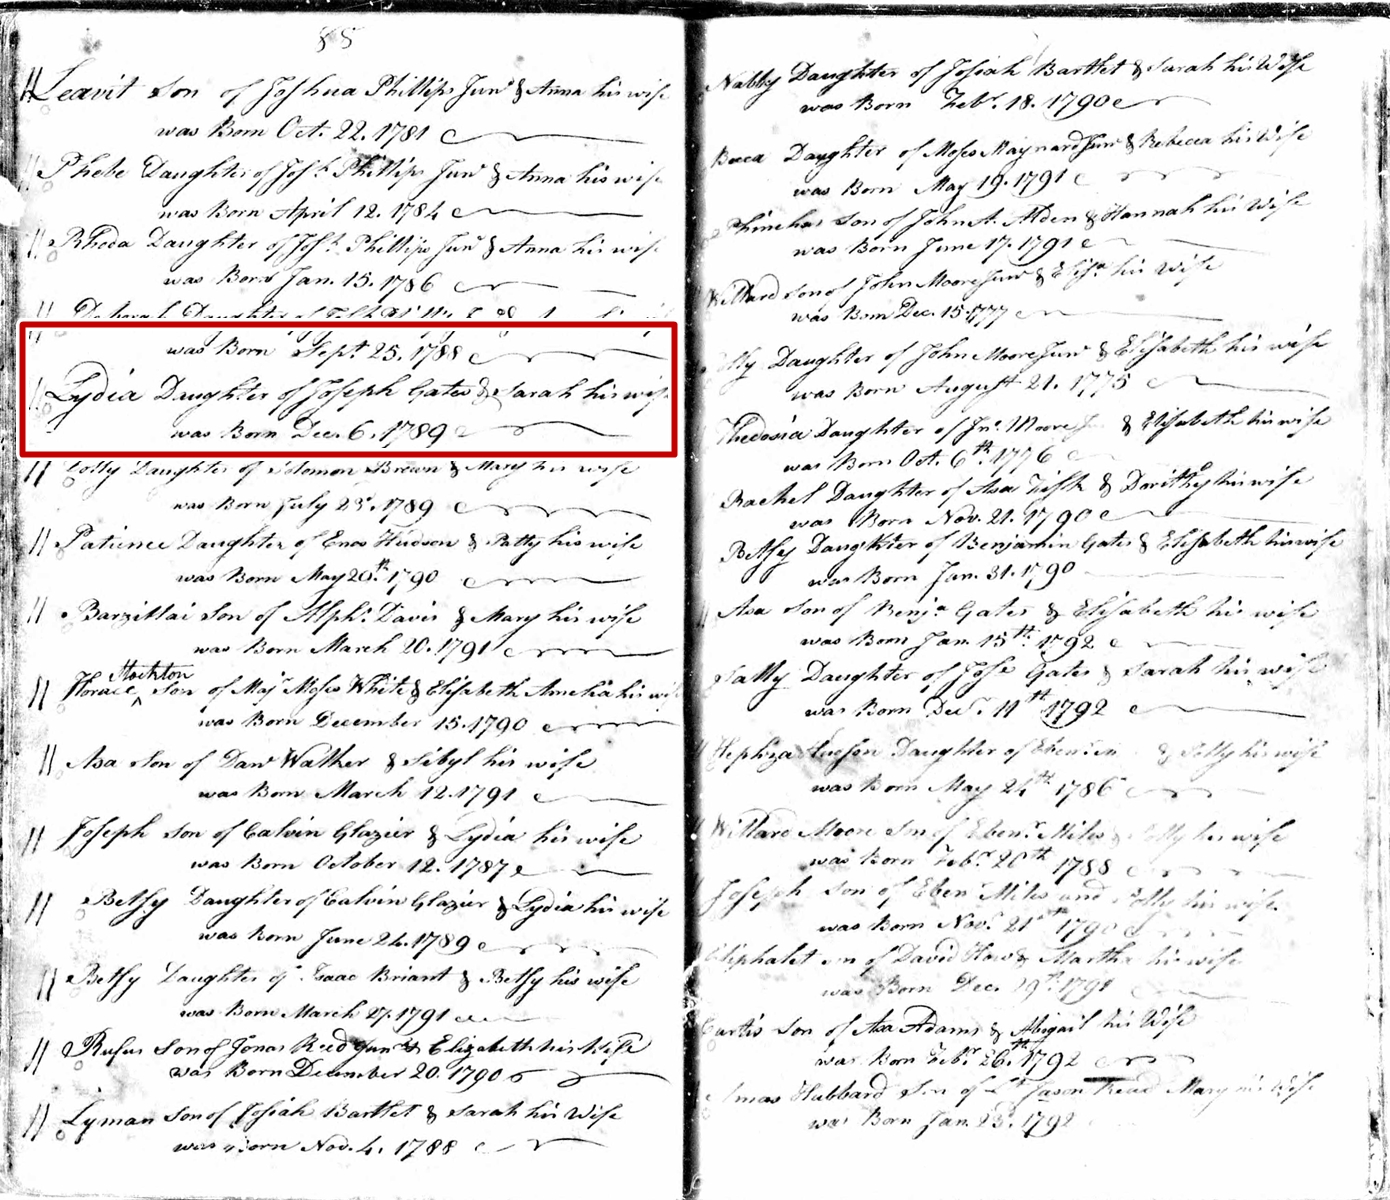 88
Leavit Son of Joshua Phillips Junr & Anna his wife
was Born Oct. 22. 1781
Phebe Daughter of Josh. Phillips Junr & Anna his wife
was Born April 12. 1784
Rheda Daughter of Josh. Phillips Junr & Anna his wife
was Born Jan. 15. 1786
Deborah Daughter of
was Born Sept. 25. 1788
Lydia Daughter of Joseph Gates & Sarah his wife
was Born Dec. 6. 1789
Daughter of Solomon Brown & Mary his wife
was Born July 23. 1789
Patience Daughter of Enos Hudson & Patty his wife
was Born May 20th. 1790
Barzillai Son of Alphs. Davis & Mary his wife
was Born March 20. 1791
Stockton
Horace ^ Son of Majr Moses White & Elisabeth Amelia his wife
was Born December 15. 1790
Asa Son of Danl Walker & Sibyl his wife
was Born March 12. 1791
Joseph Son of Calvin Glazier & Lydia his wife
was Born October 12. 1787
Betsy Daughter of Calvin Glazier & Lydia his wife
was Born June 24. 1789
Betsy Daughter of Isaac Briant & Betsy his wife
was Born March 27. 1791
Rufus Son of Jonas Reed Junr & Elizabeth his Wife
was Born December 20. 1790
Lyman Son of Josiah Bartlet & Sarah his Wife
was Born Nov. 4. 1788
Nabby Daughter of Josiah Bartlet & Sarah his Wife
was Born Febr. 18. 1790
Becca Daughter of Moses Maynard Junr & Rebecca his Wife
was Born May 19. 1791
Phinehas Son of John A. Alden & Hannah his Wife
was Born June 17. 1791
Willard Son of John Moore Junr & Elisa his Wife
was Born Dec. 15. 1777
Daughter of John Moore Junr & Elisabeth his wife
was Born August 21. 1775
Thedosia Daughter of Jno. Moore & Elisabeth his wife
was Born Oct. 6th. 1776
Rachel Daughter of Asa Fisk & Dorithy his wife
was Born Nov. 21. 1790
Betsey Daughter of Benjamin Gates & Elisabeth his wife
was Born Jan. 31. 1790
Asa Son of Benja Gates & Elisabeth his wife
was Born Jan. 15th. 1792
Sally Daughter of Jose Gates & Sarah his wife
was Born Decr. 11th 1792
Hephza Daughter of & his wife
was Born May 24th 1786
Willard Moore Son of Ebenr. Miles & Polly his wife
was Born Febr 20th 1788
Joseph Son of Eben Miles and Polly his wife.
was Born Novr. 21st 1790
Eliphalet on of David How & Martha his wife
was Born Dec. 29th. 1791
Curtis Son of Asa Adams & Abigail his Wife
was Born Febr. 26.th 1792
Hubbard Son of Lt Jason Read Mary his Wife
was Born Jan. 23. 1792